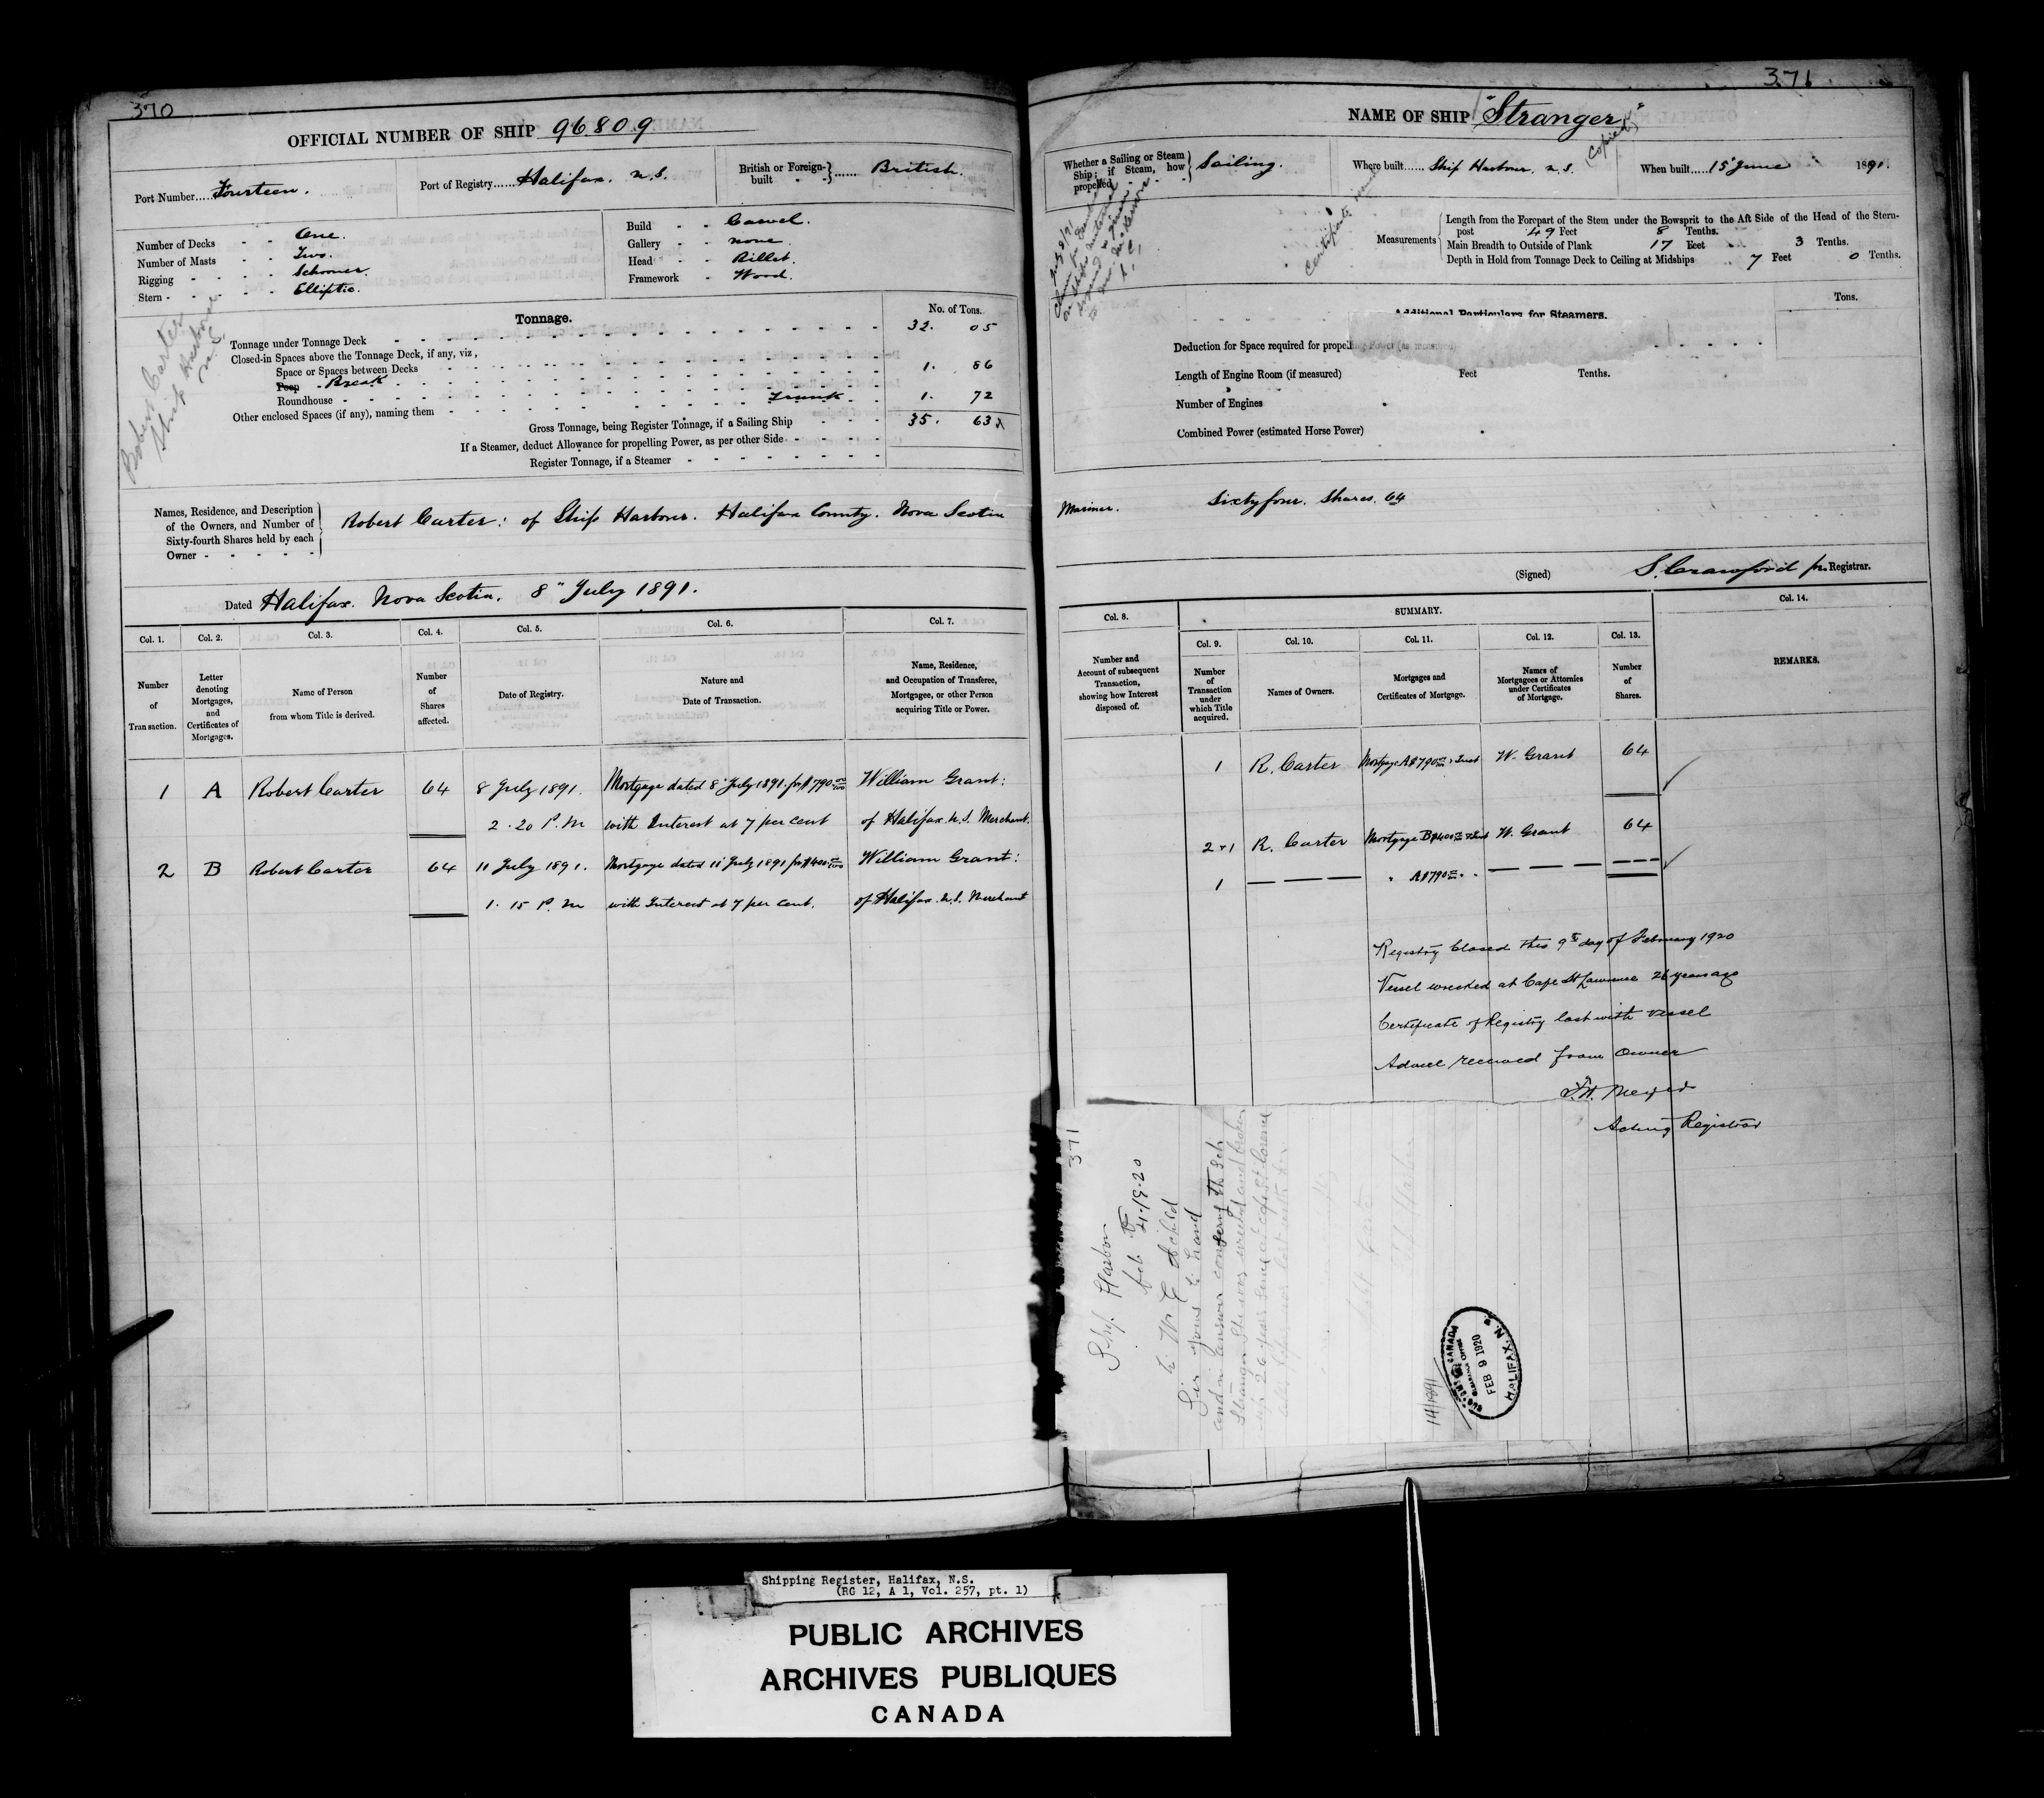 370
OFFICIAL NUMBER OF SHIP 96809
Port Number.....Fourteen.
Port of Registry......Halifax. N.S.
British or Foreign-built ...... British.
Number of Decks - - One.
Number of Masts - - Two.
Rigging - - - - Schooner.
Stern - - - - - Elliptic.
Build - - Carvel.
Gallery - - none.
Head - - Billet.
Framework - Wood.
Robert Carter
Ship Harbour
Tonnage.
No. of Tons.
Tonnage under Tonnage Deck 32. 05
Closed-in Spaces above the Tonnage Deck, if any, viz.,
Space or Spaces between Decks
Poop Break 1. 86
Roundhouse
Other enclosed Spaces (if any), naming them Trunk 1. 72
Gross Tonnage, being Register Tonnage, if a Sailing Ship 35. 63
If a Steamer, deduct Allowance for propelling Power, as per other Side
Register Tonnage, if a Steamer
Names, Residence, and Description
of the Owners, and Number of
Sixty-fourth Shares held by each
Owner
Robert Carter: of Ship Harbour. Halifax County. Nova Scotia
Dated Halifax. Nova Scotia. 8" July 1891.
Col. 1. Col. 2. Col. 3. Col. 4. Col. 5. Col. 6. Col. 7.
Number of Transaction.
Letter denoting Mortgages, and Certificates of Mortgages.
Name of Person from whom Title is derived.
Number of Shares affected.
Date of Registry.
Nature and Date of Transaction.
Name, Residence, and Occupation of Transferee, Mortgagee, or other Person acquiring Title or Power.
1 A Robert Carter 64 8 July 1891. Mortgage dated 8" July 1891. for $790 00/100 William Grant:
2.20 P.M with Interest at 7 per cent of Halifax N.S. Merchant.
2 B Robert Carter 64 11 July 1891. Mortgage dated 11" July 1891 for $400 00/100 William Grant:
1.15 P.M with Interest at 7 per cent. of Halifax. N.S. Merchant
371
NAME OF SHIP "Stranger"
Whether a Sailing or Steam Ship; if Steam, how propelled Sailing.
Where built...... Ship Harbour. N.S.
When built.....15" June 1891.
(Copied)
Certificate
Measurements
Length from the Forepart of the Stem under the Bowsprit to the Aft Side of the Head of the Stern-
post 49 Feet 8 Tenths.
Main Breadth to Outside of Plank 17 Feet 3 Tenths.
Depth in Hold from Tonnage Deck to Ceiling at Midships 7 Feet 0 Tenths.
Additional Particulars for Steamers.
Tons.
Deduction for Space required for propelling Power (as measured)
Length of Engine Room (if measured) Feet Tenths.
Number of Engines
Combined Power (estimated Horse Power)
Mariner. Sixty four. Shares. 64
(Signed) S. Crawford Registrar.
Col. 8. SUMMARY. Col. 14.
Col. 9. Col. 10. Col. 11. Col. 12. Col. 13.
Number and Account of subsequent Transaction, showing how Interest disposed of.
Number of Transaction under which Title acquired.
Names of Owners.
Mortgages and Certificates of Mortgage.
Names of Mortgagees or Attornies under Certificates of Mortgage.
Number of Shares.
REMARKS.
1 R. Carter Mortgage A $790 & Inst W. Grant 64
2+1 R. Carter Mortgage B $400 & Inst W. Grant 64
1 — — — " A $790 " " — — — —
Registry Closed this 9th day of February 1920
Vessel wrecked at Cape St Lawrence 26 years ago
Certificate of Registry lost with vessel
Advice received from Owner
Acting Registrar
371
Ship Harbor
feb 4-19-20
Sir yours to hand
and in answer the Sch
Stranger She was wrecked and broken
up 26 years
14/1891
CANADA
FEB 9 1920
HALIFAX, N.S.
Shipping Register, Halifax, N.S.
(RG 12, A 1, Vol. 257, pt. 1)
PUBLIC ARCHIVES
ARCHIVES PUBLIQUES
CANADA